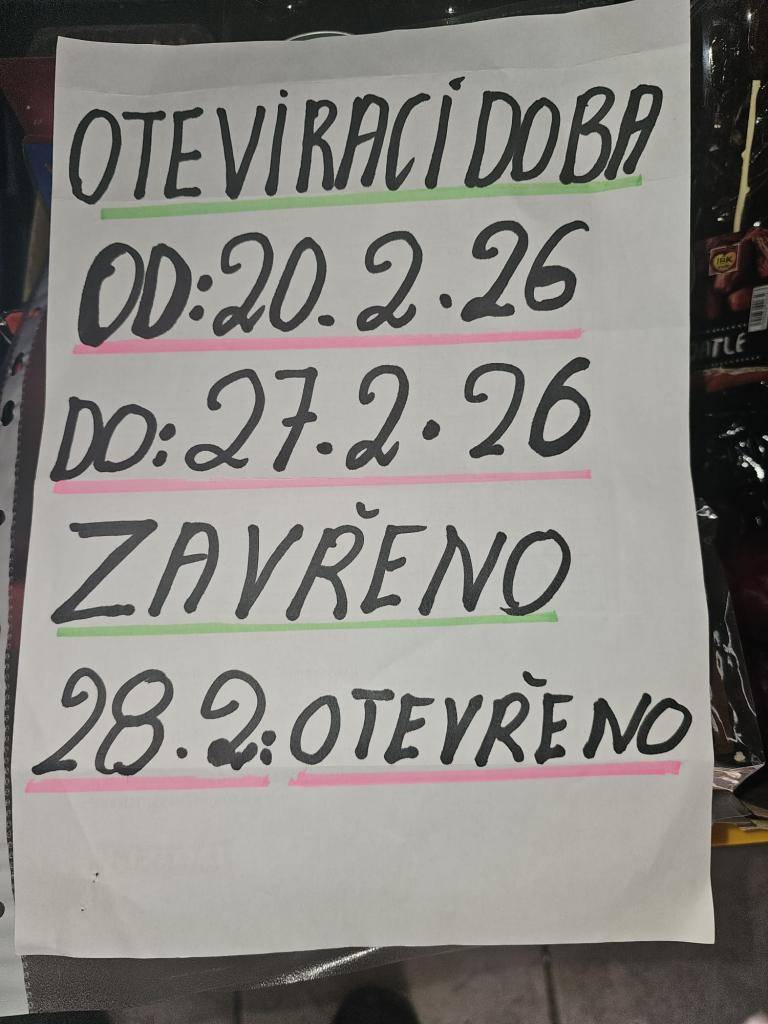 OTEVÍRACÍ DOBA
OD: 20. 2. 26
DO: 27. 2. 26
ZAVŘENO
28. 2.: OTEVŘENO
IBK